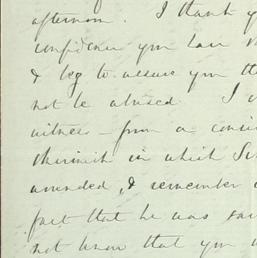 afternoon. I thank y
confidence you have
& beg to assure you th
not be abused I
witness – from a
in which
amended, & remember
fact that he was
not know that you